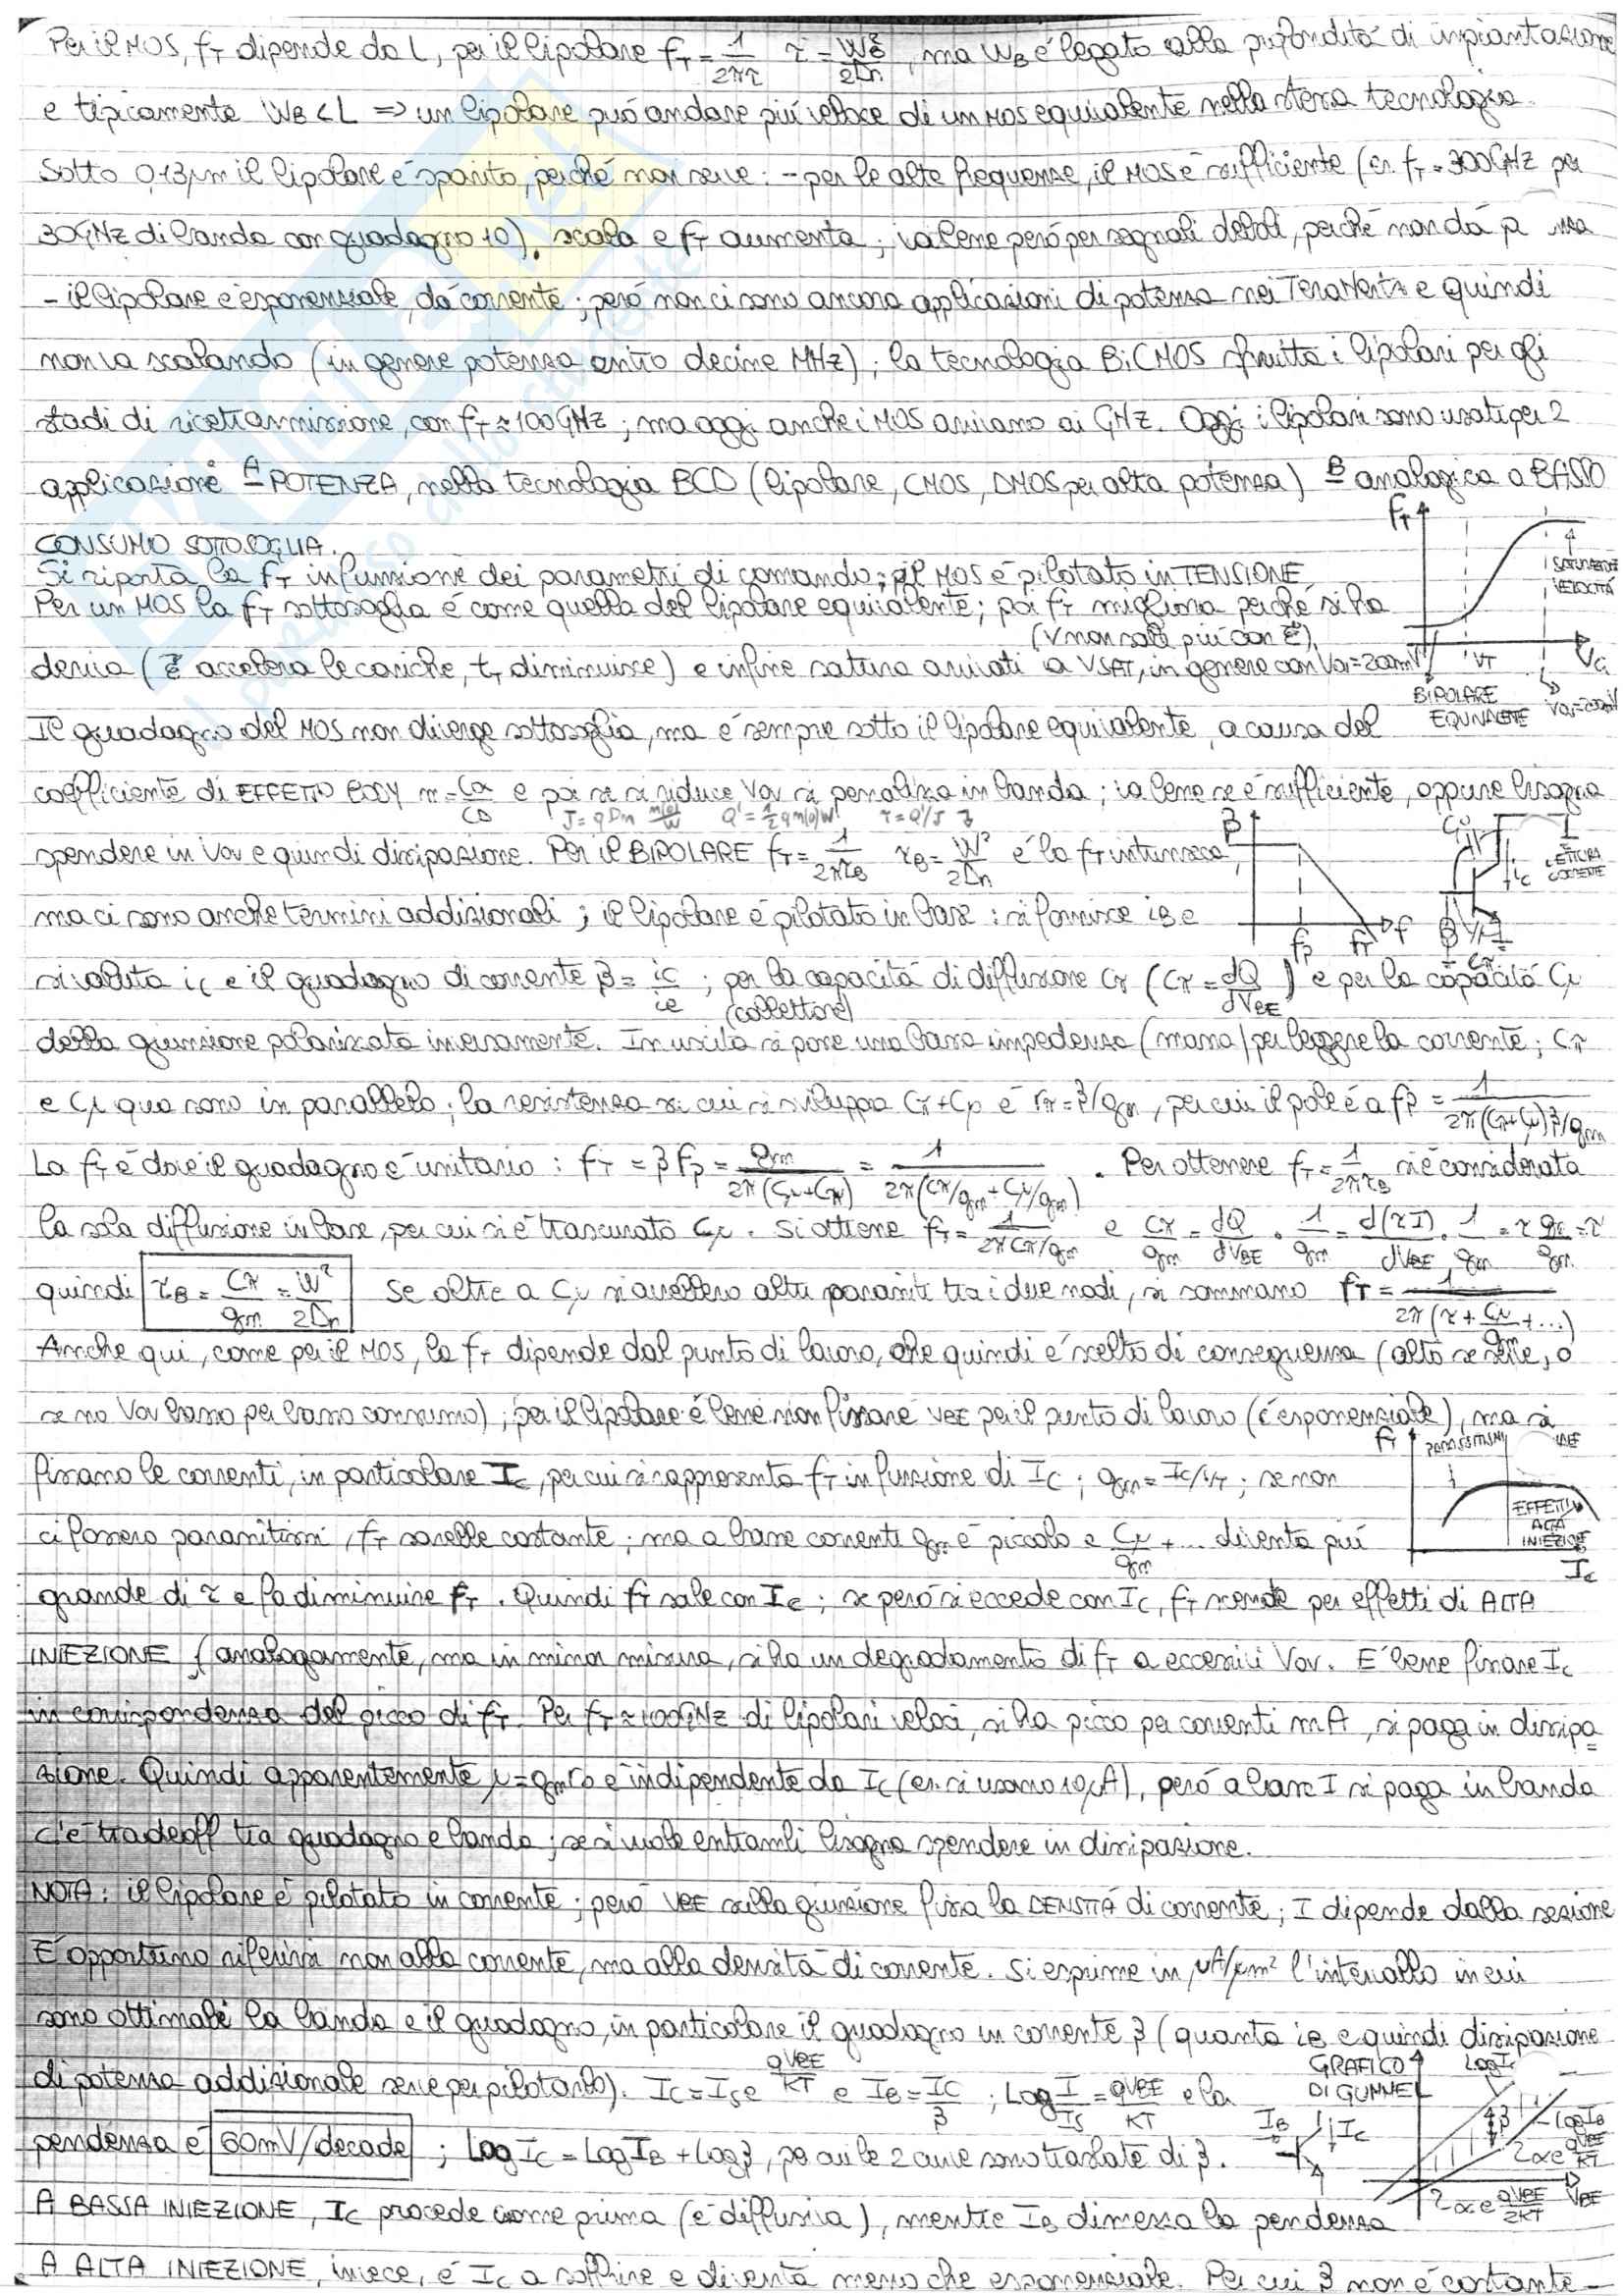 Per il MOS, fT dipende da L, per il bipolare fT = 1/2πτ τ = WB²/2Dn, ma WB è legato alla profondità di impiantazione
e tipicamente WB < L => un bipolare può andare più veloce di un MOS equivalente nella stessa tecnologia.
Sotto 0,13μm il bipolare è sparito, perché non serve: - per le alte frequenze, il MOS è sufficiente (es. fT = 300GHz per
30GHz di banda con guadagno 10), scala e fT aumenta; va bene però per segnali deboli, perché non dà
- il bipolare è esponenziale, dà corrente; però non ci sono ancora applicazioni di potenza nei TeraHertz e quindi
non va scalando (in genere potenza entro decine MHz); la tecnologia BiCMOS sfrutta i bipolari per gli
stadi di ricetrasmissione, con fT ≈ 100GHz; ma oggi anche i MOS arrivano ai GHz. Oggi i bipolari sono usati per 2
applicazioni A POTENZA, nella tecnologia BCD (bipolare, CMOS, DMOS per alta potenza) B analogica a BASSO
CONSUMO SOTTOSOGLIA.
fT
SATURAZIONE VELOCITÀ
Si riporta la fT in funzione dei parametri di comando; il MOS è pilotato in TENSIONE
Per un MOS la fT sottosoglia è come quella del bipolare equivalente; poi fT migliora perché si ha
(v non sale più con E)
deriva (E accelera le cariche, tr diminuisce) e infine satura arrivati a VSAT, in genere con Vov = 200mV
VT VG
BIPOLARE EQUIVALENTE Vov=200mV
Il guadagno del MOS non diverge sottosoglia, ma è sempre sotto il bipolare equivalente, a causa del
coefficiente di EFFETTO BODY m = Cox/CD e poi se si riduce Vov si penalizza in banda; va bene se è sufficiente, oppure bisogna
J = qDn n(0)/W Q' = 1/2 q n(0)W τ = Q'/J
spendere in Vov e quindi dissipazione. Per il BIPOLARE fT = 1/2πτB τB = W²/2Dn è la fT intrinseca,
β
Cμ
LETTURA CORRENTE
iC
ma ci sono anche termini addizionali; il bipolare è pilotato in base: si fornisce iB e
fβ fT f
si valuta iC e il guadagno di corrente β = ic/ie; per la capacità di diffusione Cπ (Cπ = dQ/dVBE) e per la capacità Cμ
(collettore)
della giunzione polarizzata inversamente. In uscita si pone una bassa impedenza (massa) per leggere la corrente; Cπ
e Cμ qua sono in parallelo; la resistenza su cui si sviluppa Cπ+Cμ è rπ = β/gm, per cui il polo è a fβ = 1/2π(Cπ+Cμ)β/gm
La fT è dove il guadagno è unitario: fT = βfβ = gm/2π(Cμ+Cπ) = 1/2π(Cπ/gm + Cμ/gm). Per ottenere fT = 1/2πτB si è considerata
la sola diffusione in base, per cui si è trascurato Cμ. Si ottiene fT = 1/2πCπ/gm e Cπ/gm = dQ/dVBE · 1/gm = d(τI)/dVBE · 1/gm = τ gm/gm = τ
quindi τB = Cπ/gm = W²/2Dn Se oltre a Cμ si avessero altri parassiti tra i due nodi, si sommano fT = 1/2π(τ + Cμ/gm + ...)
Anche qui, come per il MOS, la fT dipende dal punto di lavoro, che quindi è scelto di conseguenza (alto se serve, o
se no Vov basso per basso consumo); per il bipolare è bene non fissare VBE per il punto di lavoro (è esponenziale), ma si
fT PARASSITISMI
fissano le correnti, in particolare IC, per cui si rappresenta fT in funzione di IC; gm = IC/VT; se non
EFFETTI ALTA INIEZIONE
ci fossero parassitismi, fT sarebbe costante; ma a basse correnti gm è piccolo e Cμ/gm + ... diventa più
IC
grande di τ e fa diminuire fT. Quindi fT sale con IC; se però si eccede con IC, fT scende per effetti di ALTA
INIEZIONE (analogamente, ma in minor misura, si ha un degradamento di fT a eccessivi Vov. È bene fissare IC
in corrispondenza del picco di fT. Per fT ≈ 100GHz di bipolari veloci, si ha picco per correnti mA, si paga in dissipa=
zione. Quindi apparentemente μ = gm r0 è indipendente da IC (es. si usano 10μA), però a basse I si paga in banda
c'è tradeoff tra guadagno e banda; se si vuole entrambi bisogna spendere in dissipazione.
NOTA: il bipolare è pilotato in corrente; però VBE sulla giunzione fissa la DENSITÀ di corrente; I dipende dalla sezione
È opportuno riferirsi non alla corrente, ma alla densità di corrente. Si esprime in μA/μm² l'intervallo in cui
sono ottimali la banda e il guadagno, in particolare il guadagno in corrente β (quanta iB e quindi dissipazione
di potenza addizionale serve per pilotarlo). IC = IS e^qVBE/KT e IB = IC/β; Log I/IS = qVBE/KT e la
GRAFICO DI GUMMEL
Log I
IB IC
β
LogIB
∝e^qVBE/KT
pendenza è 60mV/decade; Log IC = Log IB + Log β, per cui le 2 curve sono traslate di β.
∝e^qVBE/2KT VBE
A BASSA INIEZIONE, IC procede come prima (è diffusiva), mentre IB dimezza la pendenza
A ALTA INIEZIONE, invece, è IC a soffrire e diventa meno che esponenziale. Per cui β non è costante -